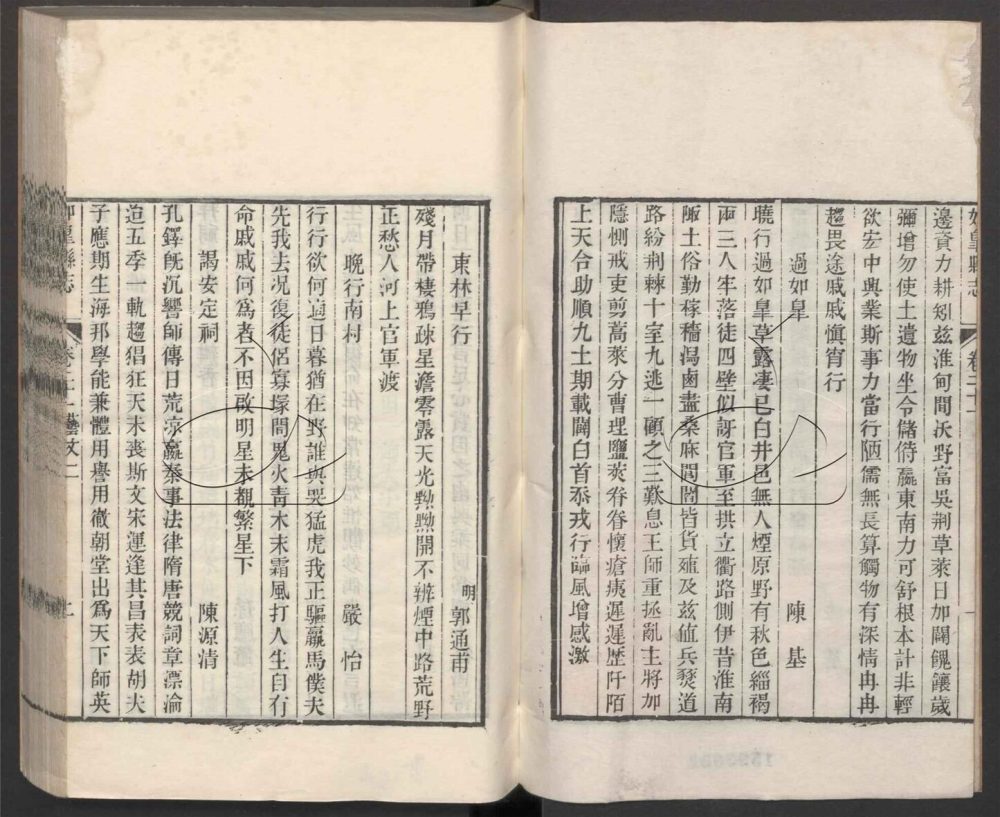 如皋縣志 卷二十一
邊資力耕矧茲淮甸間沃野富吳荆草萊日加闢餽饟歲
彌增勿使土遺物坐令儲偫羸東南力可舒根本計非輕
欲宏中興業斯事力當行陋儒無長算觸物有深情冉冉
趨畏途戚戚愼宵行
過如皐 陳基
曉行過如皐草露凄已白井邑無人煙原野有秋色緇褐
兩三人牢落徒四壁似訝官軍至拱立衢路側伊昔淮南
陬土俗勤稼穡潟鹵盡桑麻閭閻皆貨殖及茲値兵燹道
路紛荆棘十室九逃一顧之三歎息王師重拯亂主將加
隱惻戒吏剪蒿萊分曹理鹽莢眷眷懷瘡痍遲遲歷阡陌
上天合助順九土期載闢白首忝戎行臨風增感激
東林早行 明 郭通甫
殘月帶棲鴉疎星澹零露天光黝黝開不辨煙中路荒野
正愁人河上官軍渡
晚行南村 嚴怡
行行欲何適日暮猶在野誰與哭猛虎我正驅羸馬僕夫
先我去况復徒侶寡塚間鬼火靑木末霜風打人生自有
命戚戚何爲者不因啟明星未覩繁星下
謁安定祠 陳源清
孔鐸旣沉響師傳日荒涼嬴秦事法律隋唐競詞章漂淪
迨五季一軌趨猖狂天未喪斯文宋運逢其昌表表胡夫
子應期生海邦學能兼體用譽用徹朝堂出爲天下師英
如皋縣志 卷二十一 藝文二 上